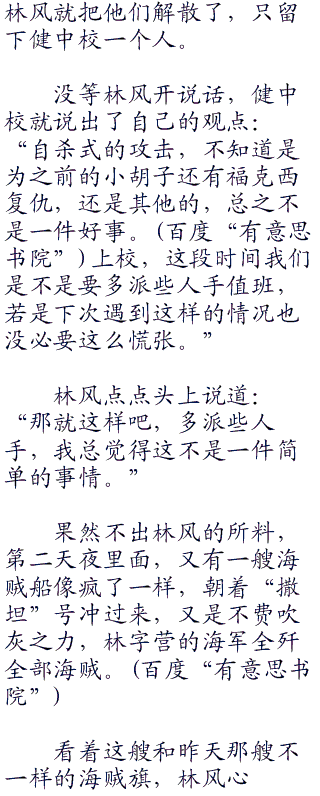 林风就把他们解散了，只留
下健中校一个人。
没等林风开说话，健中
校就说出了自己的观点：
“自杀式的攻击，不知道是
为之前的小胡子还有福克西
复仇，还是其他的，总之不
是一件好事。(百度“有意思
书院”)上校，这段时间我们
是不是要多派些人手值班，
若是下次遇到这样的情况也
没必要这么慌张。”
林风点点头上说道：
“那就这样吧，多派些人
手，我总觉得这不是一件简
单的事情。”
果然不出林风的所料，
第二天夜里面，又有一艘海
贼船像疯了一样，朝着“撒
坦”号冲过来，又是不费吹
灰之力，林字营的海军全歼
全部海贼。(百度“有意思书
院”)
看着这艘和昨天那艘不
一样的海贼旗，林风心